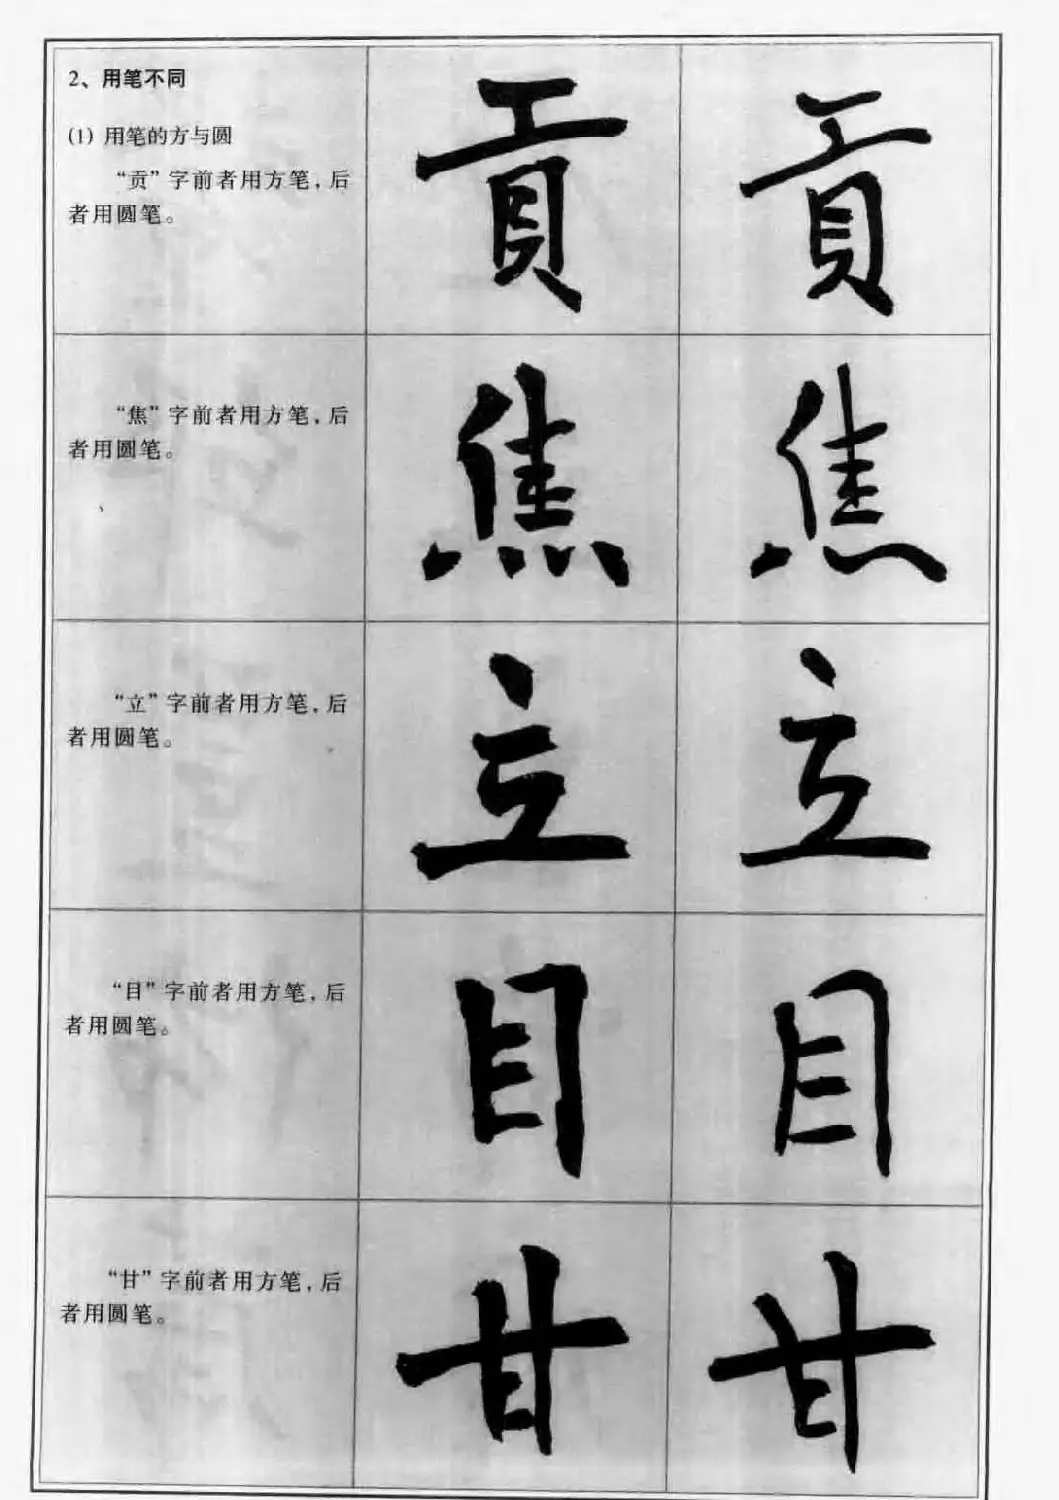 2、用笔不同
(1) 用笔的方与圆
“贡”字前者用方笔，后
者用圆笔。
貢 貢
“焦”字前者用方笔，后
者用圆笔。
焦 焦
“立”字前者用方笔，后
者用圆笔。
立 立
“目”字前者用方笔，后
者用圆笔。
目 目
“甘”字前者用方笔，后
者用圆笔。
甘 甘